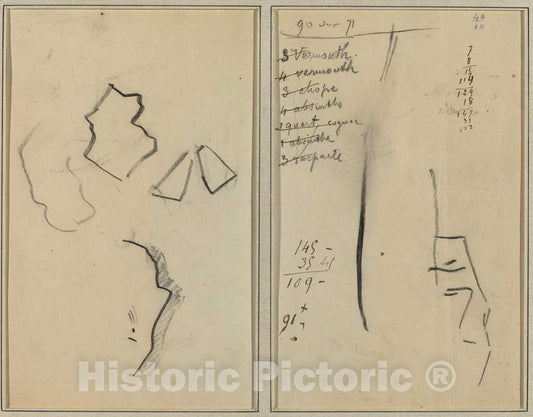 90 sur 71
3 Vermouth.
4 vermouth
3 chope
4 absinthe
1 quart cognac
1 absinthe
3
40
10
7
8
15
114
129
18
147
35
12
145 -
35
109 -
91
Historic Pictoric ®